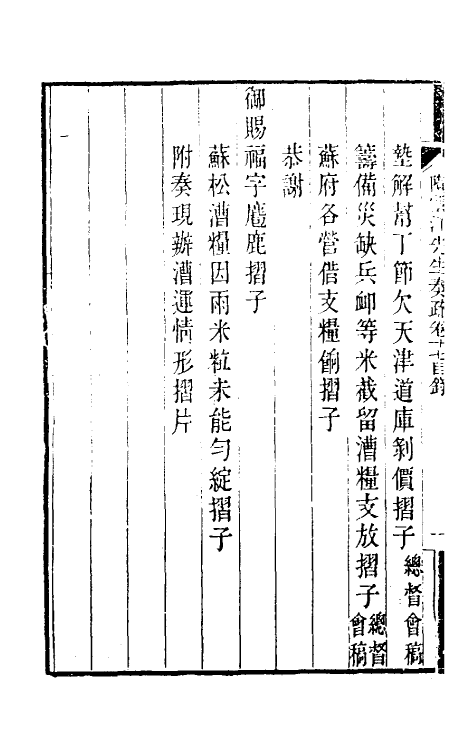 陶雲汀先生奏疏卷十七目錄
墊解幫丁節欠天津道庫剝價摺子 總督會稿
籌備災缺兵䘏等米截留漕糧支放摺子 總督會稿
蘇府各營借支糧餉摺子
恭謝
御賜福字麅鹿摺子
蘇松漕糧因雨米粒未能勻綻摺子
附奏現辦漕運情形摺片